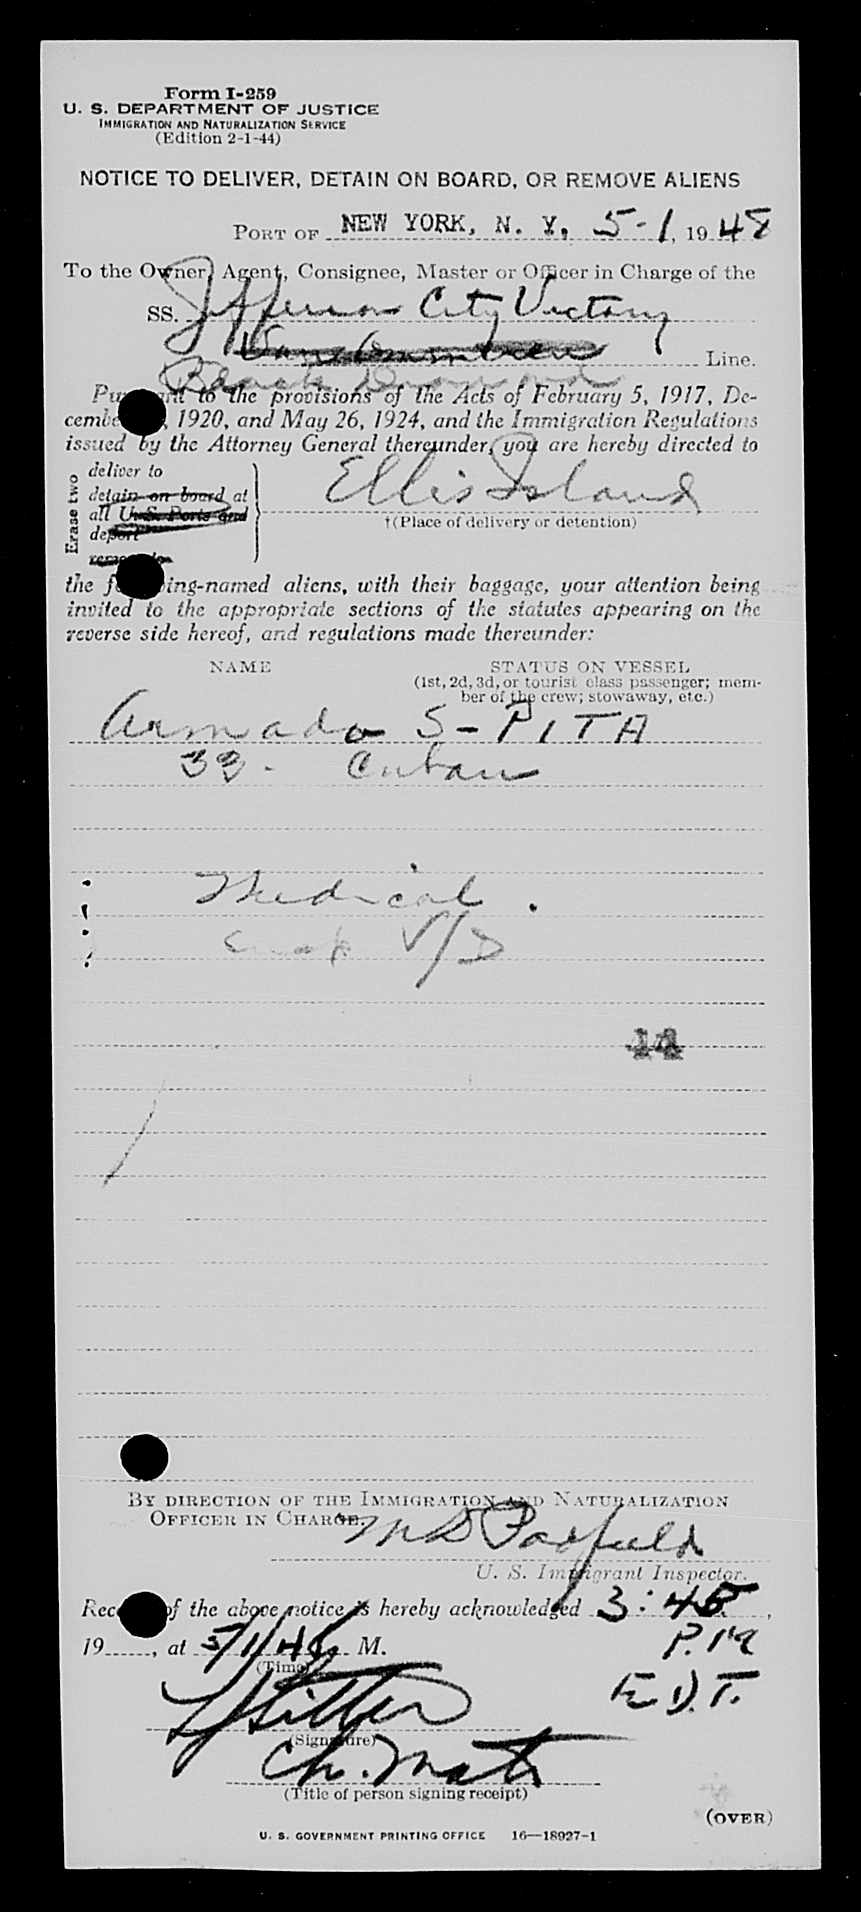 Form I-259
U. S. DEPARTMENT OF JUSTICE
IMMIGRATION AND NATURALIZATION SERVICE
(Edition 2-1-44)
NOTICE TO DELIVER, DETAIN ON BOARD, OR REMOVE ALIENS
PORT OF NEW YORK, N. Y, 5-1, 1948
To the Owner, Agent, Consignee, Master or Officer in Charge of the
SS. Jefferson City Victory
Line.
Black Diamond
Pursuant to the provisions of the Acts of February 5, 1917, De-
cember 1920, and May 26, 1924, and the Immigration Regulations
issued by the Attorney General thereunder, you are hereby directed to
Erase two
deliver to
detain on board at
all U. S. Ports and
deport
remove to
Ellis Island
†(Place of delivery or detention)
the following-named aliens, with their baggage, your attention being
invited to the appropriate sections of the statutes appearing on the
reverse side hereof, and regulations made thereunder:
NAME STATUS ON VESSEL
(1st, 2d, 3d, or tourist class passenger; mem-
ber of the crew; stowaway, etc.)
Armado S-PITA
33. Cuban
Medical.
V/D
14
BY DIRECTION OF THE IMMIGRATION AND NATURALIZATION
OFFICER IN CHARGE.
M D Padfield
U. S. Immigrant Inspector.
Receipt of the above notice is hereby acknowledged 3:45,
19......, at 5/1/48 M. P.M
(Time)
E.D.T.
(Signature)
Ch. Mate
(Title of person signing receipt)
(OVER)
U. S. GOVERNMENT PRINTING OFFICE 16—18927-1